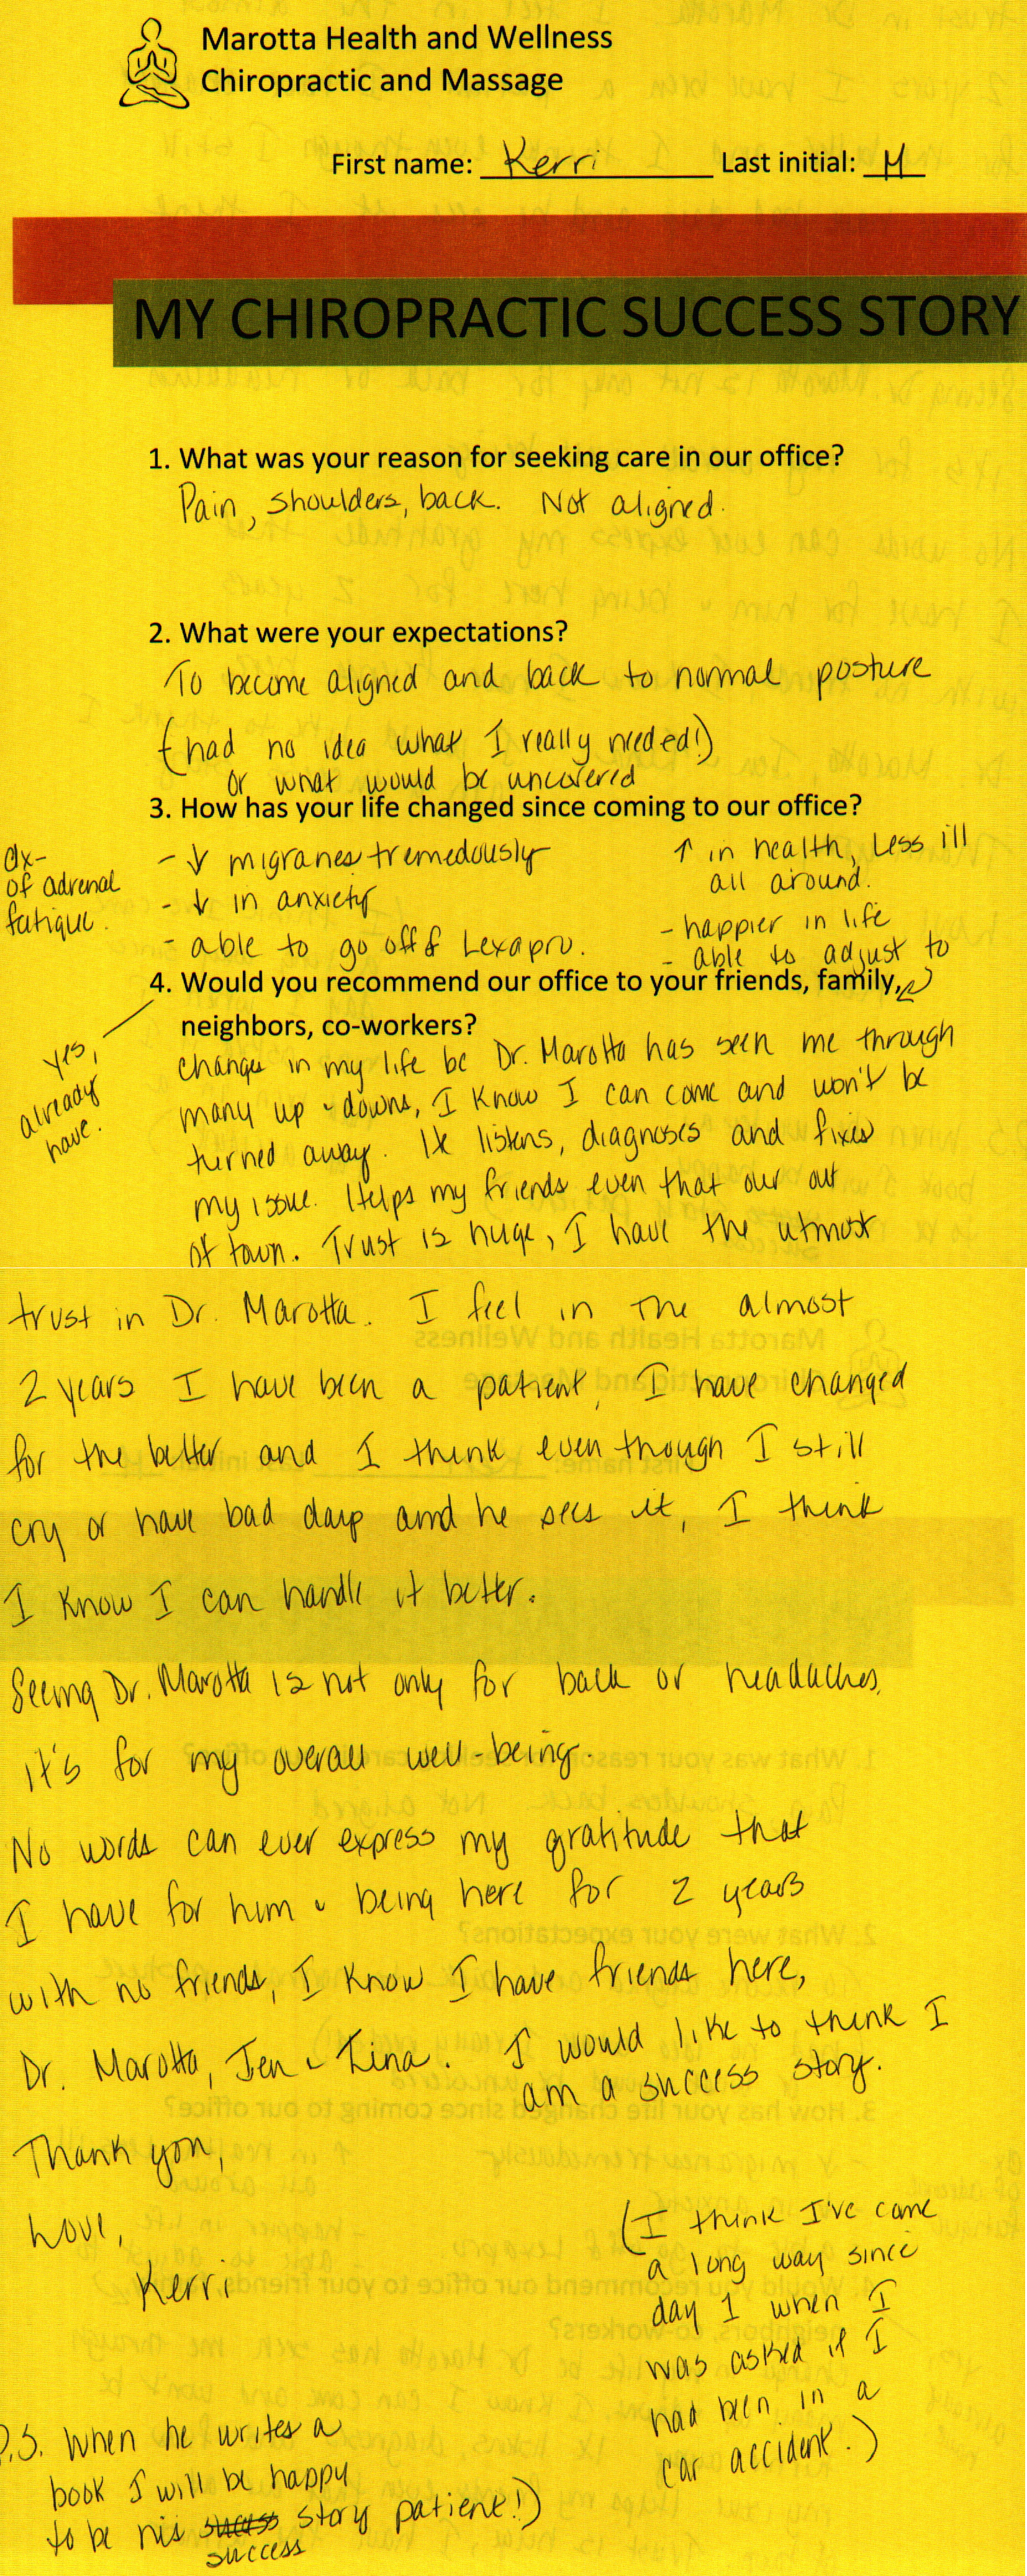 Marotta Health and Wellness
Chiropractic and Massage
First name: Kerri Last initial: M
MY CHIROPRACTIC SUCCESS STORY
1. What was your reason for seeking care in our office?
Pain, shoulders, back. Not aligned.
2. What were your expectations?
To become aligned and back to normal posture
(had no idea what I really needed!)
or what would be uncovered
3. How has your life changed since coming to our office?
dx-
of adrenal
fatigue.
- ↓ migranes tremedously
- ↓ in anxiety
- able to go off of Lexapro.
↑ in health, Less ill
all around.
- happier in life
- able to adjust to
4. Would you recommend our office to your friends, family,
neighbors, co-workers?
yes,
already
have.
changes in my life bc Dr. Marotta has seen me through
many up & downs, I know I can come and won't be
turned away. He listens, diagnoses and fixes
my issue. Helps my friends even that our out
of town. Trust is huge, I have the utmost
trust in Dr. Marotta. I feel in the almost
2 years I have been a patient, I have changed
for the better and I think even though I still
cry or have bad days amd he sees it, I think
I know I can handle it better.
Seeing Dr. Marotta is not only for back or headaches,
it's for my overall well-being.
No words can ever express my gratitude that
I have for him & being here for 2 years
with no friends, I know I have friends here,
Dr. Marotta, Jen & Tina. I would like to think I
am a success story.
Thank you,
Love,
Kerri
(I think I've came
a long way since
day 1 when I
was asked if I
had been in a
car accident.)
P.S. When he writes a
book I will be happy
to be his success story patient!)
success